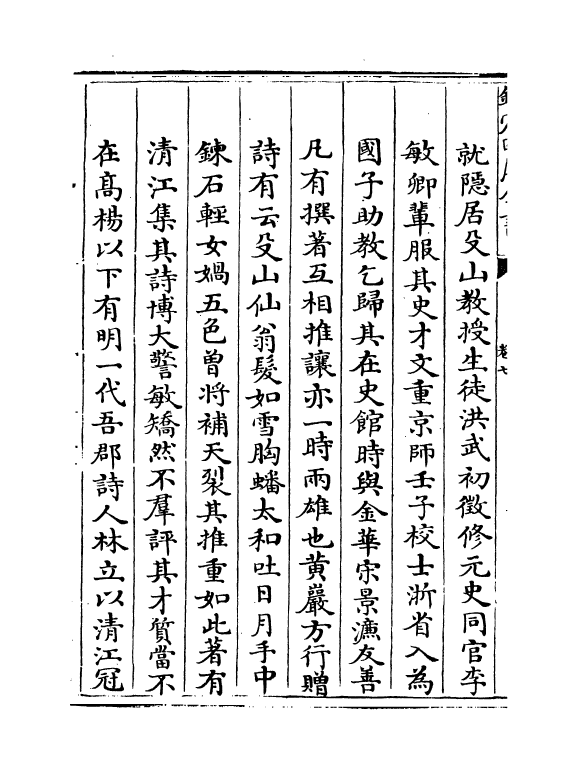 就隱居殳山教授生徒洪武初徵修元史同官李
敏卿輩服其史才文重京師壬子校士浙省入為
國子助教乞歸其在史館時與金華宋景濂友善
凡有撰著互相推讓亦一時兩雄也黄巖方行贈
詩有云殳山仙翁髮如雪胸蟠太和吐日月手中
鍊石輕女媧五色曽將補天裂其推重如此著有
清江集其詩博大警敏矯然不羣評其才質當不
在高楊以下有明一代吾郡詩人林立以清江冠
卷七